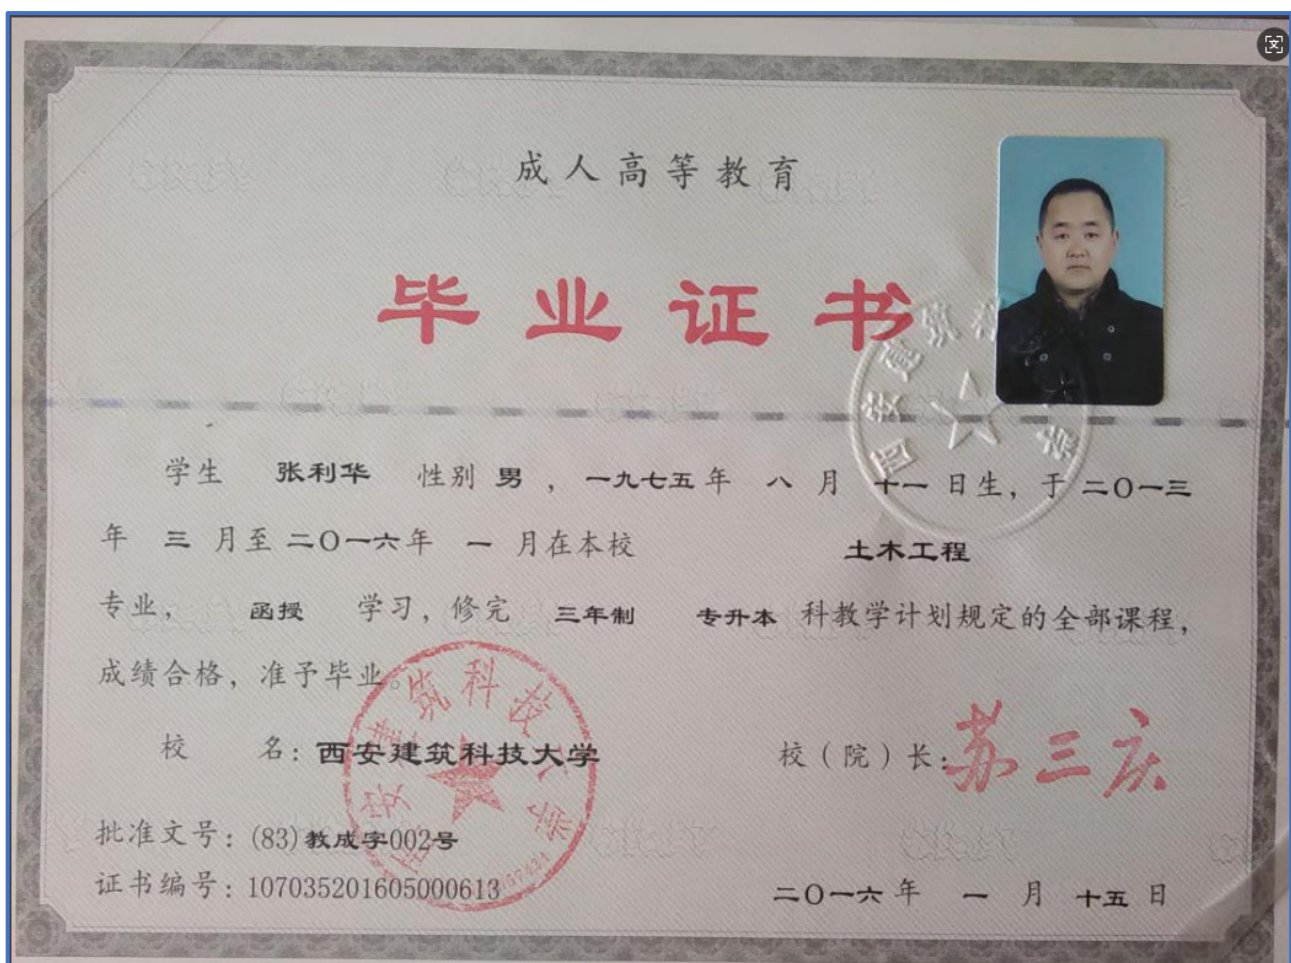 成人高等教育
毕业证书
学生 张利华 性别 男 ，一九七五年 八 月 十一 日生，于 二〇一三
年 三 月至 二〇一六年 一 月在本校 土木工程
专业， 函授 学习，修完 三年制 专升本 科教学计划规定的全部课程，
成绩合格，准予毕业。
校 名：西安建筑科技大学 校（院）长：苏三庆
批准文号：(83)教成字002号
证书编号：107035201605000613
二〇一六年 一 月 十五 日
西安建筑科技大学